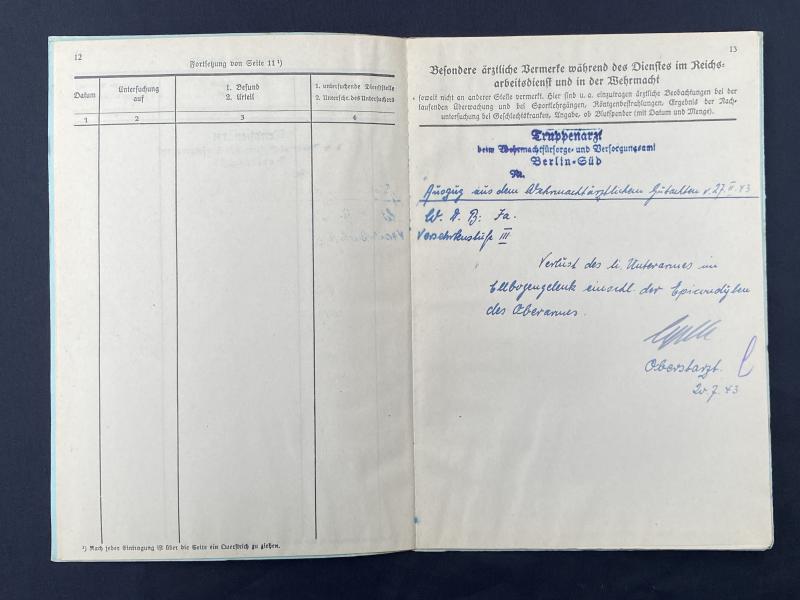 12
Fortsetzung von Seite 11 ¹)
Datum
Untersuchung
auf
1. Befund
2. Urteil
1. untersuchende Dienststelle
2. Unterschr. des Untersuchers
1
2
3
4
¹) Nach jeder Eintragung ist über die Seite ein Querstrich zu ziehen.
13
Besondere ärztliche Vermerke während des Dienstes im Reichs-
arbeitsdienst und in der Wehrmacht
soweit nicht an anderer Stelle vermerkt. Hier sind u. a. einzutragen ärztliche Beobachtungen bei der
laufenden Überwachung und bei Sportlehrgängen, Röntgenbestrahlungen, Ergebnis der Nach-
untersuchung bei Geschlechtskranken, Angabe, ob Blutspender (mit Datum und Menge).
Truppenarzt
beim Wehrmachtfürsorge- und Versorgungsamt
Berlin-Süd
Auszug aus dem Wehrmachtärztlichen Gutachten v. 27. 43
W. D. B: Ja.
Versehrtenstufe III
Verlust des li. Unterarmes im
Ellbogengelenk einschl. der Epicondylen
des Oberarmes.
Oberstarzt.
20.7.43